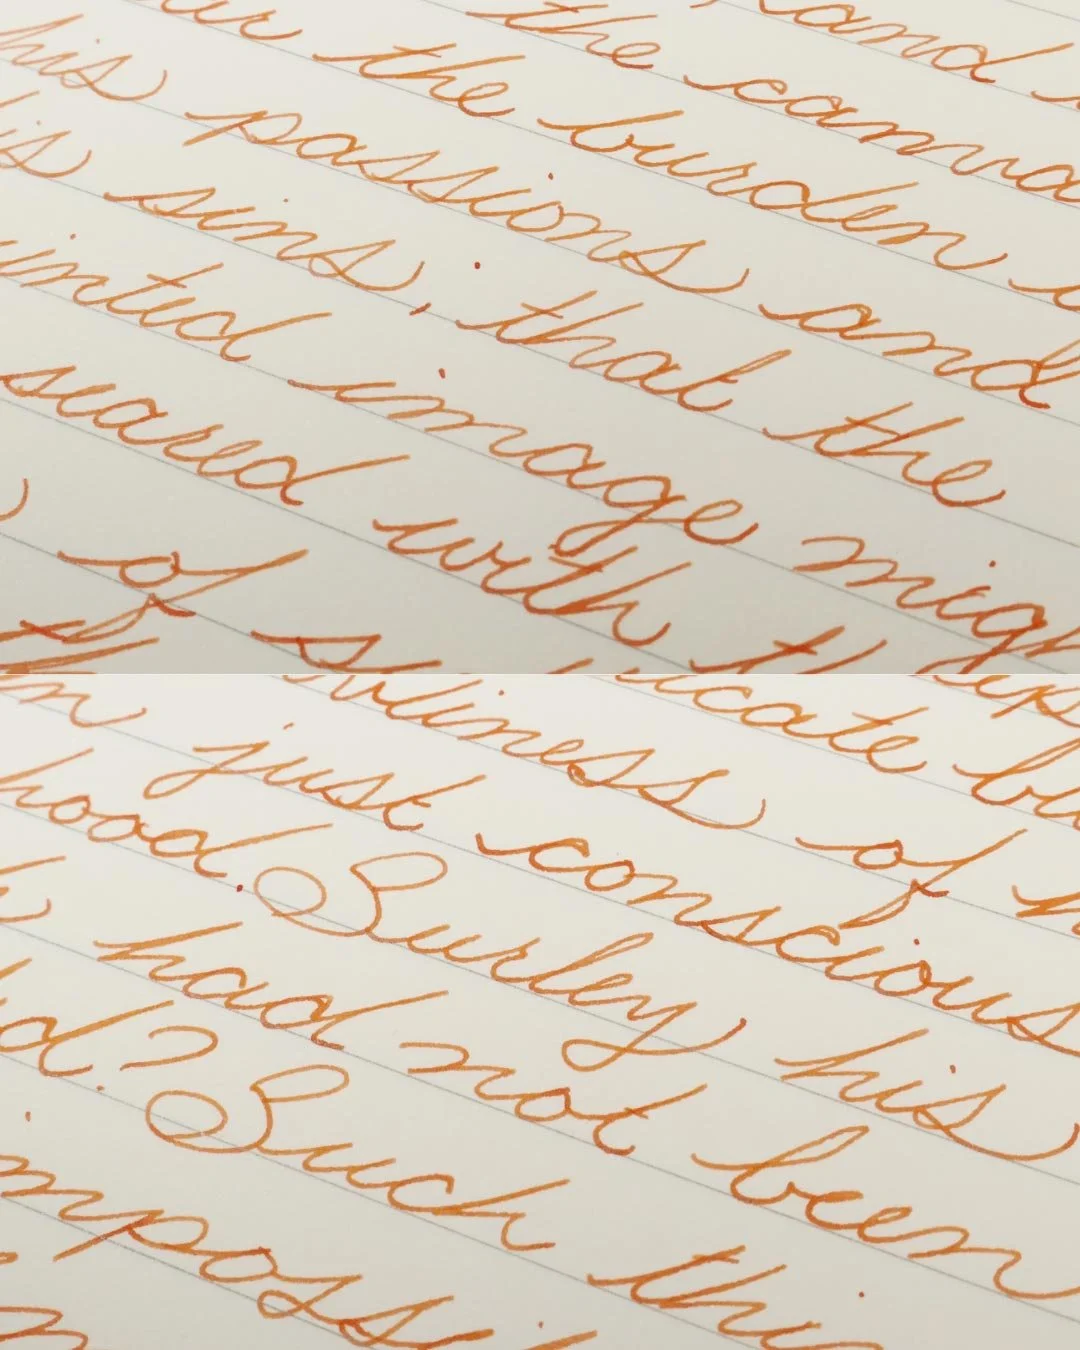 and
the canva
ur the burden
his passions and
is sins, that the
inted image migh
seared with t
of s
ep
icate bu
liness of
m just conscious
hood. Burley his
had not been
d? Buck thi
mpossi